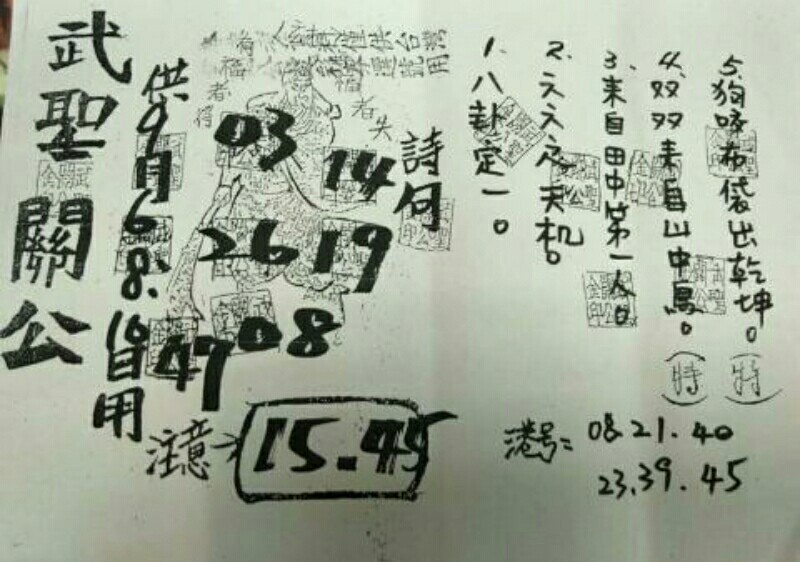 武聖關公
供9月6.8.10日用
有福者得
者失
03
14
26 19
47 08
注意→ 15.45
詩句
1.八卦定一。
2.天机。
3.来自田中第一人。
4.双双来自山中鳥。(特)
5.狗咬布袋出乾坤。(特)
港号: 08.21.40
23.39.45